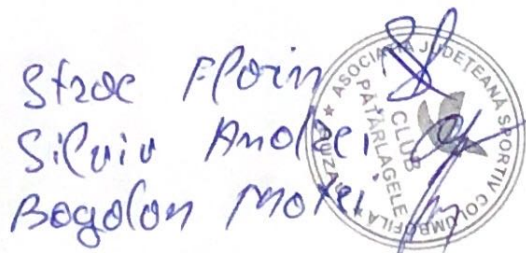 Stroe Florin
Silviu Andrei
Bogdan Matei
ASOCIAȚIA JUDEȚEANĂ SPORTIV COLUMBOFILĂ
CLUB
PĂTÂRLAGELE